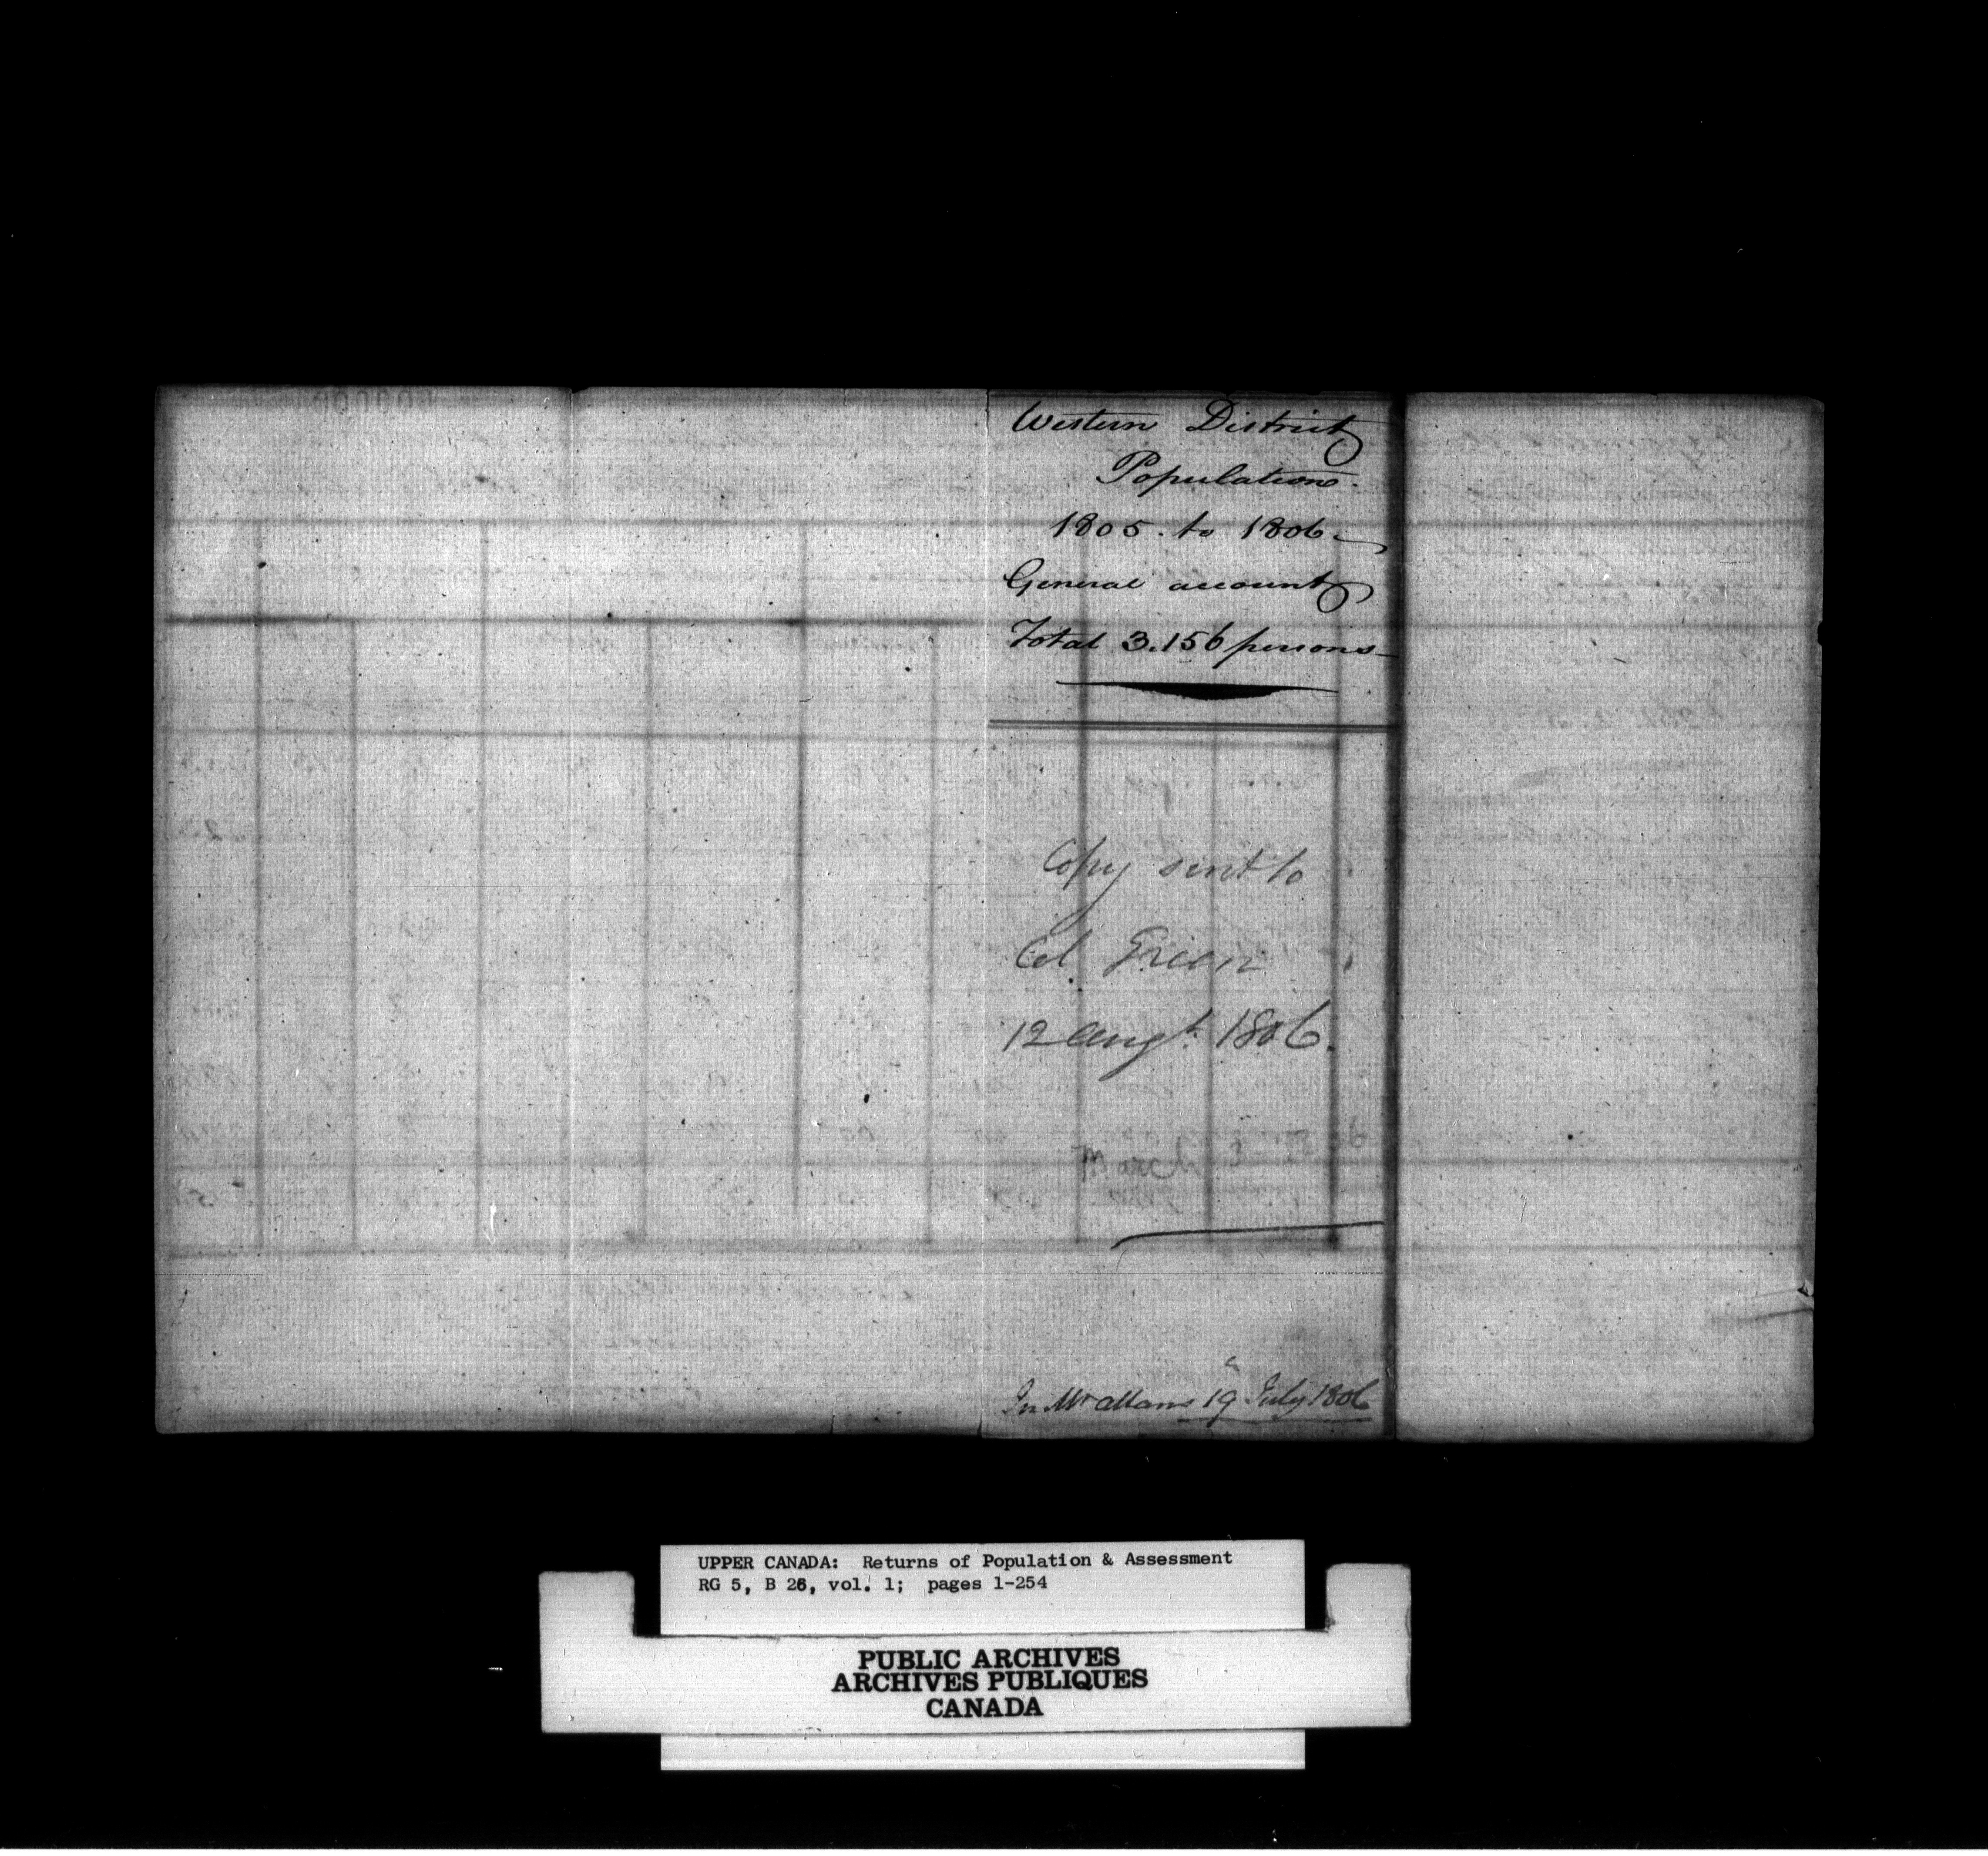 Western District
Population.
1805. to 1806.
General account
Total 3.156 persons
Copy sent to
Col. Green
12 Augt. 1806.
March
In Mr Allans 19 July 1806
UPPER CANADA: Returns of Population & Assessment
RG 5, B 26, vol. 1; pages 1-254
PUBLIC ARCHIVES
ARCHIVES PUBLIQUES
CANADA